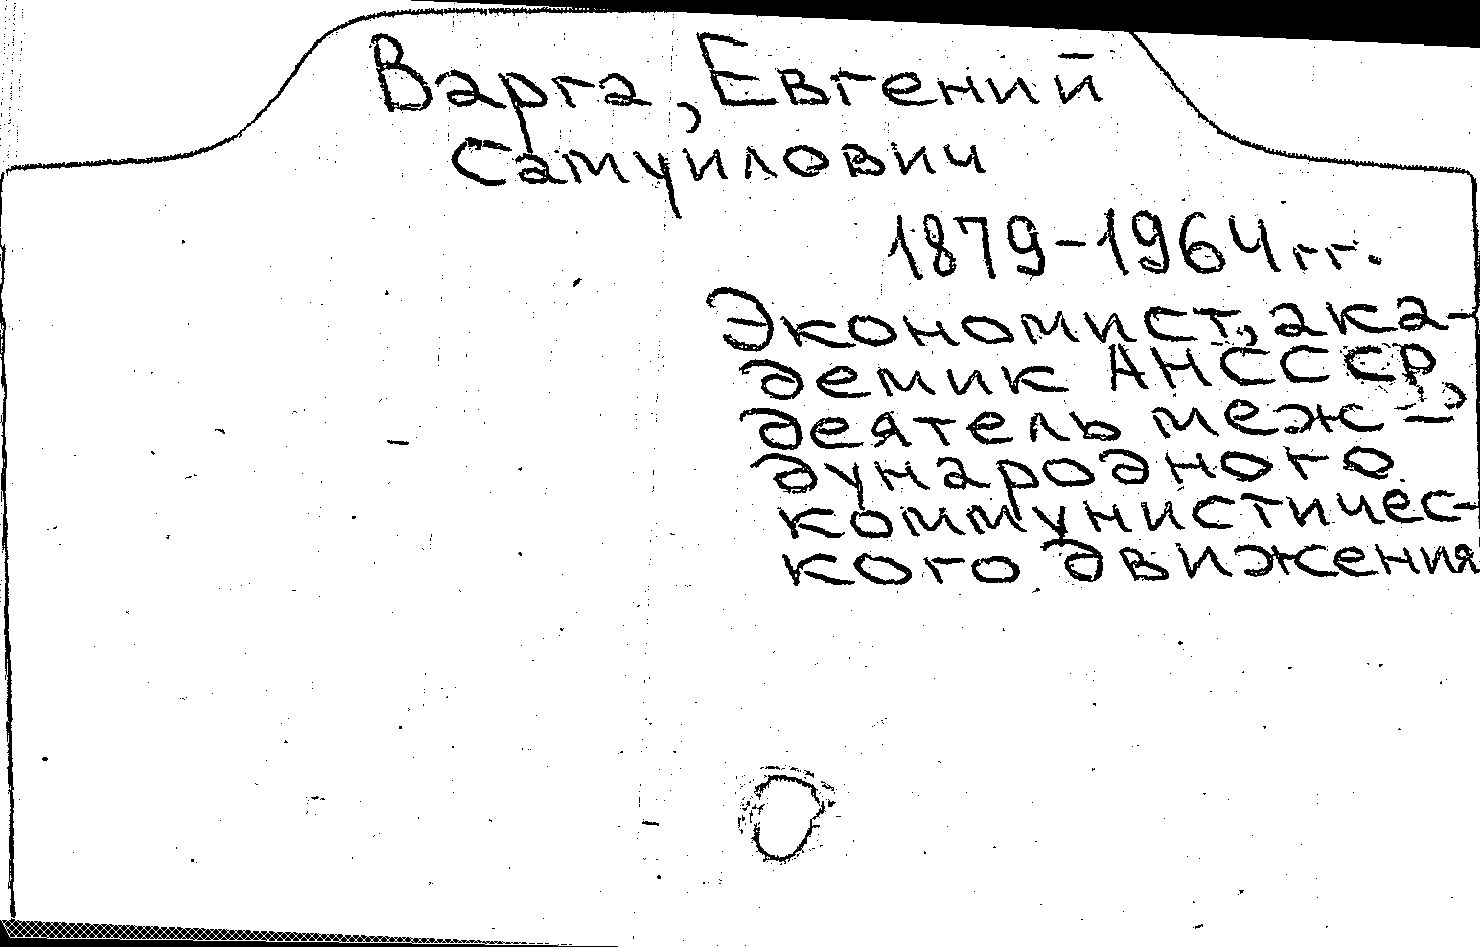 Варга, Евгений
Самуилович
1879-1964 гг.
Экономист, ака-
демик АН СССР,
деятель меж-
дународного
коммунистичес-
кого движения